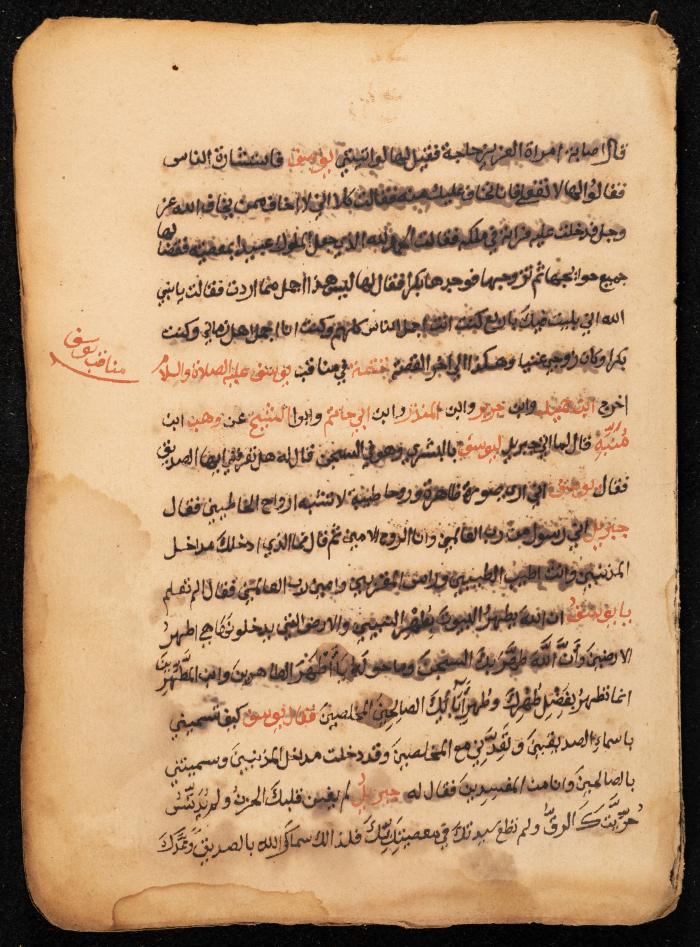 قال اصابة امراة العزيز حاجة فقيل لها لو اتيتي يوسف فاستشارة الناس
فقالوا لها لا تفعلي فانا نخاف عليك منه فقالت كلا اني لا اخاف ممن يخاف الله عز
وجل فدخلت عليه فراته في ملكه فقالت الحمد لله الذي جعل الملوك عبيدا بمعصيته فقضا لها
جميع حوايجها ثم تزوجها فوجدها بكرا فقال لها ليس هذا اجمل مما اردت فقالت يا نبي
الله اني بليت فيك باربع كنت انت اجمل الناس كلهم وكنت انا اجمل اهل زماني وكنت
بكرا وكان زوجي عنينا وهكذا الى اخر القصة في مناقب يوسف عليه الصلاة والسلام
مناقب يوسف
اخرج وابن جرير وابن المنذر وابن ابي حاتم وابوا الشيخ عن وهب ابن
منبه قال لما اتى جبريل ليوسف بالبشرى وهو في السجن قال له هل تعرفني ايها الصديق
فقال يوسف اني ارى صورة طاهرة وروحا طيبة لا تشبه ارواح الخاطيين فقال
جبريل اني رسول من رب العالمين وانا الروح الامين ثم قال فما الذي ادخلك مداخل
المذنبين وانت اطيب الطيبين وراس المقربين وامين رب العالمين فقال الم تعلم
يا يوسف ان الله يطهر البيوت بطهر النبيين والارض التي يدخلونها هي اطهر
الارضين وَأَنَّ اللَّهَ طَهَّرَ بِكَ السجن وما حوله يا أَطْهَرَ الطاهرين وابن المطهرين
انما تطهر بفضل طهرك وطهر آبائك الصالحين المخلصين فقال يوسف كيف تسميني
باسماء الصديقين وتعدني مع المخلصين وقد دخلت مدخل المذنبين وسميتني
بالصالحين وانا من المفسدين فقال له جبريل لم يغير قلبك الحزن ولم يدنس
حريتك الرق ولم تطع سيدتك في معصية ربك فلذالك سماك الله بالصديق وعدك